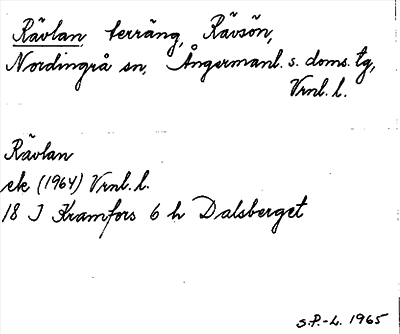 Rävlan, terräng, Rävsön,
Nordingrå sn, Ångermanl. s. doms. tg,
Vrnl. l.
Rävlan
ek (1964) Vrnl. l.
18 J Kramfors 6 h Dalsberget
S.P.-L. 1965